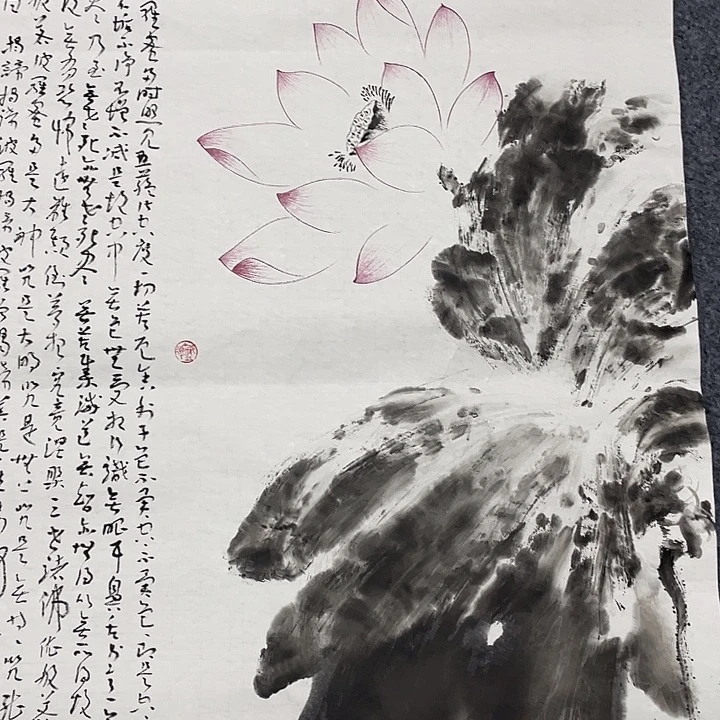 羅蜜多時照見五蘊皆空度一切苦厄舍利子色不異空空不異色色即是空
不垢不淨不增不減是故空中無色無受想行識無眼耳鼻舌身意
乃至無老死亦無老死盡無苦集滅道無智亦無得以無所得故
無有恐怖遠離顛倒夢想究竟涅槃三世諸佛依般若
般若波羅蜜多是大神咒是大明咒是無上咒是無等等咒能
曰揭諦揭諦波羅揭諦波羅僧揭諦菩提